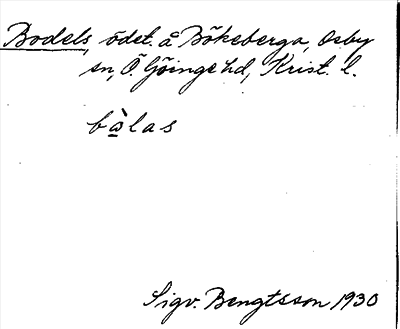 Bodels, ödet. å Bökeberga, Osby
sn, Ö. Göinge hd, Krist. l.
bò̲las
Sigv. Bengtsson 1930